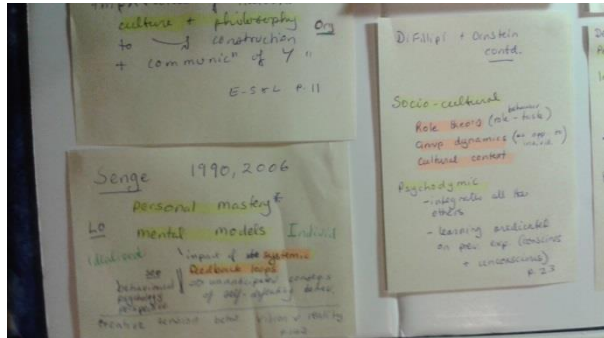 culture + philosophy Org
to construction
+ communic" of
E-S+L P.11
Senge 1990, 2006
personal mastery*
LO mental models Individ
impact of systemic
feedback loops
see
behavioural
psychology
perspective
of self-defeating behav.
creative tension betw vision + reality
DiFillipi + Ornstein
contd.
Socio-cultural
behavior
Role theory (role-taste)
Group dynamics (as opp. to
individ.)
Cultural context
Psychodymic
- integrates all
others
- learning predicated
on prev. exp. (conscious
+ unconscious)
p.23